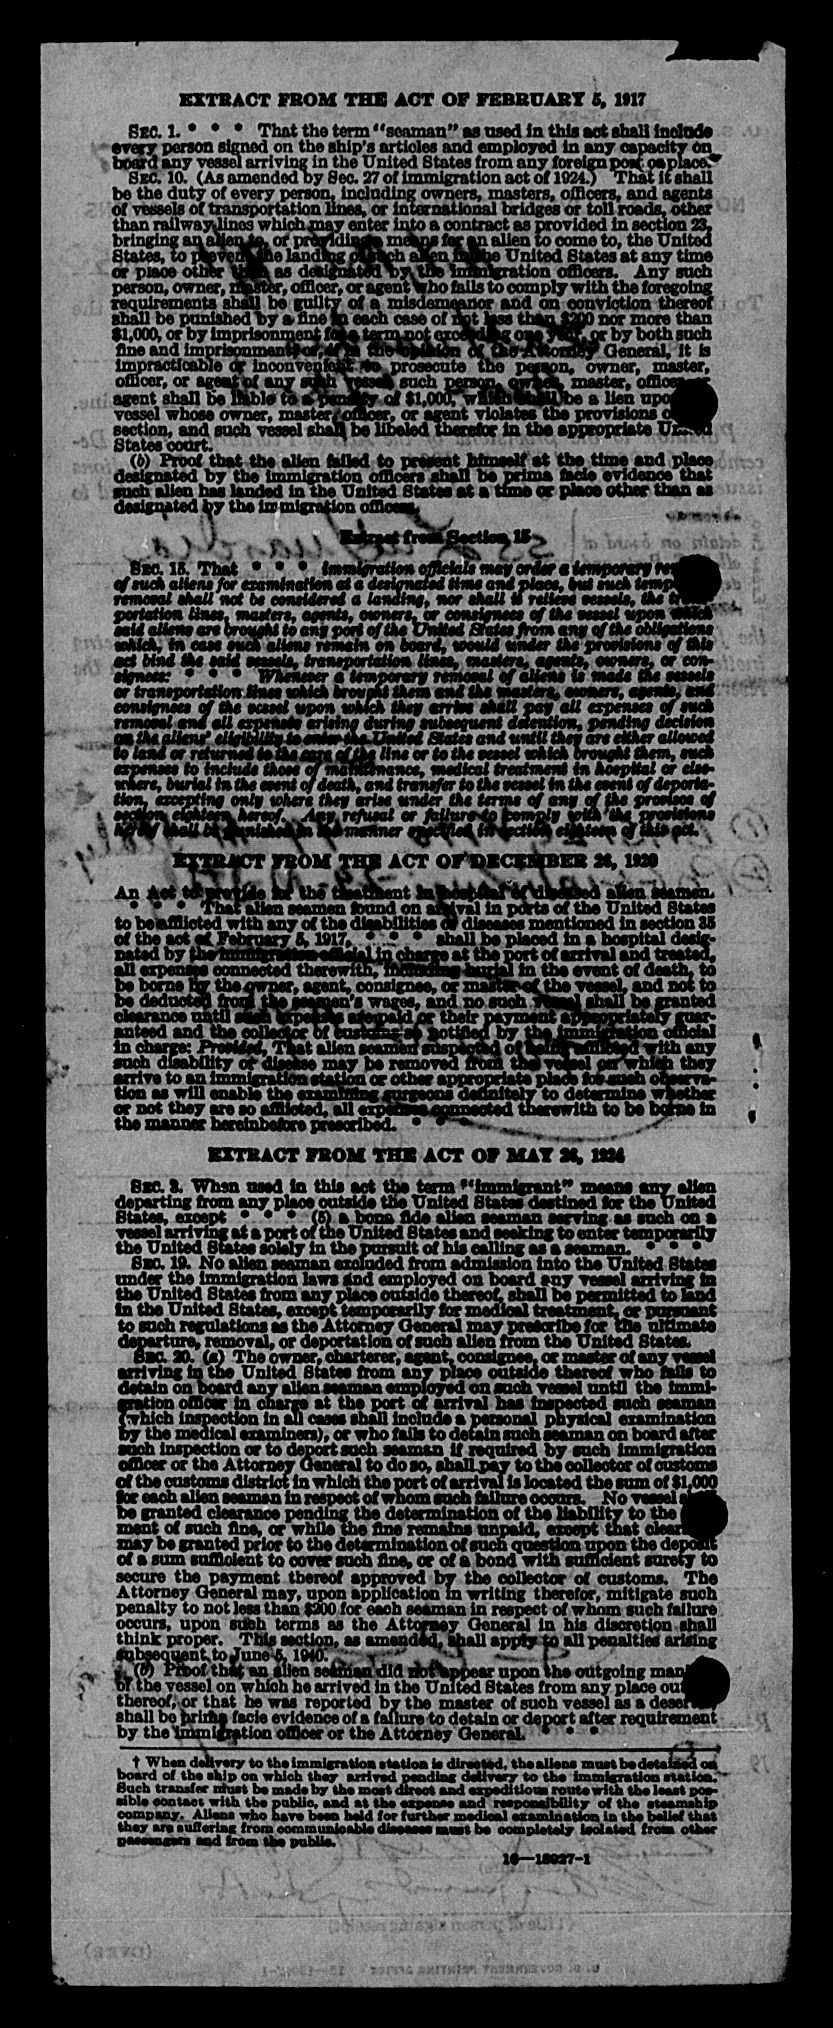 EXTRACT FROM THE ACT OF FEBRUARY 5, 1917
SEC. 1. * * * That the term "seaman" as used in this act shall include
every person signed on the ship's articles and employed in any capacity on
board any vessel arriving in the United States from any foreign port or place.
SEC. 10. (As amended by Sec. 27 of immigration act of 1924.) That it shall
be the duty of every person, including owners, masters, officers, and agents
of vessels of transportation lines, or international bridges or toll roads, other
than railway lines which may enter into a contract as provided in section 23,
bringing an alien to, or providing a means for an alien to come to, the United
States, to prevent the landing of such alien in the United States at any time
or place other than as designated by the immigration officers. Any such
person, owner, master, officer, or agent who fails to comply with the foregoing
requirements shall be guilty of a misdemeanor and on conviction thereof
shall be punished by a fine in each case of not less than $200 nor more than
$1,000, or by imprisonment for a term not exceeding one year, or by both such
fine and imprisonment; or, if in the opinion of the Attorney General, it is
impracticable or inconvenient to prosecute the person, owner, master,
officer, or agent of any such vessel, such person, owner, master, officer, or
agent shall be liable to a penalty of $1,000, which shall be a lien upon
vessel whose owner, master, officer, or agent violates the provisions of
section, and such vessel shall be libeled therefor in the appropriate United
States court.
(b) Proof that the alien failed to present himself at the time and place
designated by the immigration officers shall be prima facie evidence that
such alien has landed in the United States at a time or place other than as
designated by the immigration officers.
Extract from Section 15
SEC. 15. That * * * immigration officials may order a temporary
of such aliens for examination at a designated time and place, but such
removal shall not be considered a landing, nor shall it relieve vessels, the
portation lines, masters, agents, owners, or consignees of the vessel upon which
said aliens are brought to any port of the United States from any of the obligations
which, in case such aliens remain on board, would under the provisions of this
act bind the said vessels, transportation lines, masters, agents, owners, or con-
signees: * * * Whenever a temporary removal of aliens is made the vessels
or transportation lines which brought them and the masters, owners, agents, and
consignees of the vessel upon which they arrive shall pay all expenses of such
removal and all expenses arising during subsequent detention, pending decision
on the aliens' eligibility to enter the United States and until they are either allowed
to land or returned to the care of the line or to the vessel which brought them, such
expenses to include those of maintenance, medical treatment in hospital or else-
where, burial in the event of death, and transfer to the vessel in the event of deporta-
tion, excepting only where they arise under the terms of any of the provisos of
section eighteen hereof. Any refusal or failure to comply with the provisions
hereof shall be punished in the manner specified in section eighteen of this act.
EXTRACT FROM THE ACT OF DECEMBER 26, 1920
An Act to provide for the treatment in hospital of diseased alien seamen.
* * * That alien seamen found on arrival in ports of the United States
to be afflicted with any of the disabilities or diseases mentioned in section 35
of the act of February 5, 1917, * * * shall be placed in a hospital desig-
nated by the immigration official in charge at the port of arrival and treated,
all expenses connected therewith, including burial in the event of death, to
be borne by the owner, agent, consignee, or master of the vessel, and not to
be deducted from the seamen's wages, and no such vessel shall be granted
clearance until such expenses are paid or their payment appropriately guar-
anteed and the collector of customs so notified by the immigration official
in charge: Provided, That alien seamen suspected of being afflicted with any
such disability or disease may be removed from the vessel on which they
arrive to an immigration station or other appropriate place for such observa-
tion as will enable the examining surgeons definitely to determine whether
or not they are so afflicted, all expenses connected therewith to be borne in
the manner hereinbefore prescribed. * * *
EXTRACT FROM THE ACT OF MAY 26, 1924
SEC. 3. When used in this act the term "immigrant" means any alien
departing from any place outside the United States destined for the United
States, except * * * (5) a bona fide alien seaman serving as such on a
vessel arriving at a port of the United States and seeking to enter temporarily
the United States solely in the pursuit of his calling as a seaman. * * *
SEC. 19. No alien seaman excluded from admission into the United States
under the immigration laws and employed on board any vessel arriving in
the United States from any place outside thereof, shall be permitted to land
in the United States, except temporarily for medical treatment, or pursuant
to such regulations as the Attorney General may prescribe for the ultimate
departure, removal, or deportation of such alien from the United States.
SEC. 20. (a) The owner, charterer, agent, consignee, or master of any vessel
arriving in the United States from any place outside thereof who fails to
detain on board any alien seaman employed on such vessel until the immi-
gration officer in charge at the port of arrival has inspected such seaman
(which inspection in all cases shall include a personal physical examination
by the medical examiners), or who fails to detain such seaman on board after
such inspection or to deport such seaman if required by such immigration
officer or the Attorney General to do so, shall pay to the collector of customs
of the customs district in which the port of arrival is located the sum of $1,000
for each alien seaman in respect of whom such failure occurs. No vessel
be granted clearance pending the determination of the liability to the
ment of such fine, or while the fine remains unpaid, except that
may be granted prior to the determination of such question upon the deposit
of a sum sufficient to cover such fine, or of a bond with sufficient surety to
secure the payment thereof approved by the collector of customs. The
Attorney General may, upon application in writing therefor, mitigate such
penalty to not less than $200 for each seaman in respect of whom such failure
occurs, upon such terms as the Attorney General in his discretion shall
think proper. This section, as amended, shall apply to all penalties arising
subsequent to June 5, 1940.
(b) Proof that an alien seaman did not appear upon the outgoing
of the vessel on which he arrived in the United States from any place
thereof, or that he was reported by the master of such vessel as a deserter,
shall be prima facie evidence of a failure to detain or deport after requirement
by the immigration officer or the Attorney General. * * *
† When delivery to the immigration station is directed, the aliens must be detained on
board of the ship on which they arrived pending delivery to the immigration station.
Such transfer must be made by the most direct and expeditious route with the least pos-
sible contact with the public, and at the expense and responsibility of the steamship
company. Aliens who have been held for further medical examination in the belief that
they are suffering from communicable diseases must be completely isolated from other
passengers and from the public.
16—18927-1